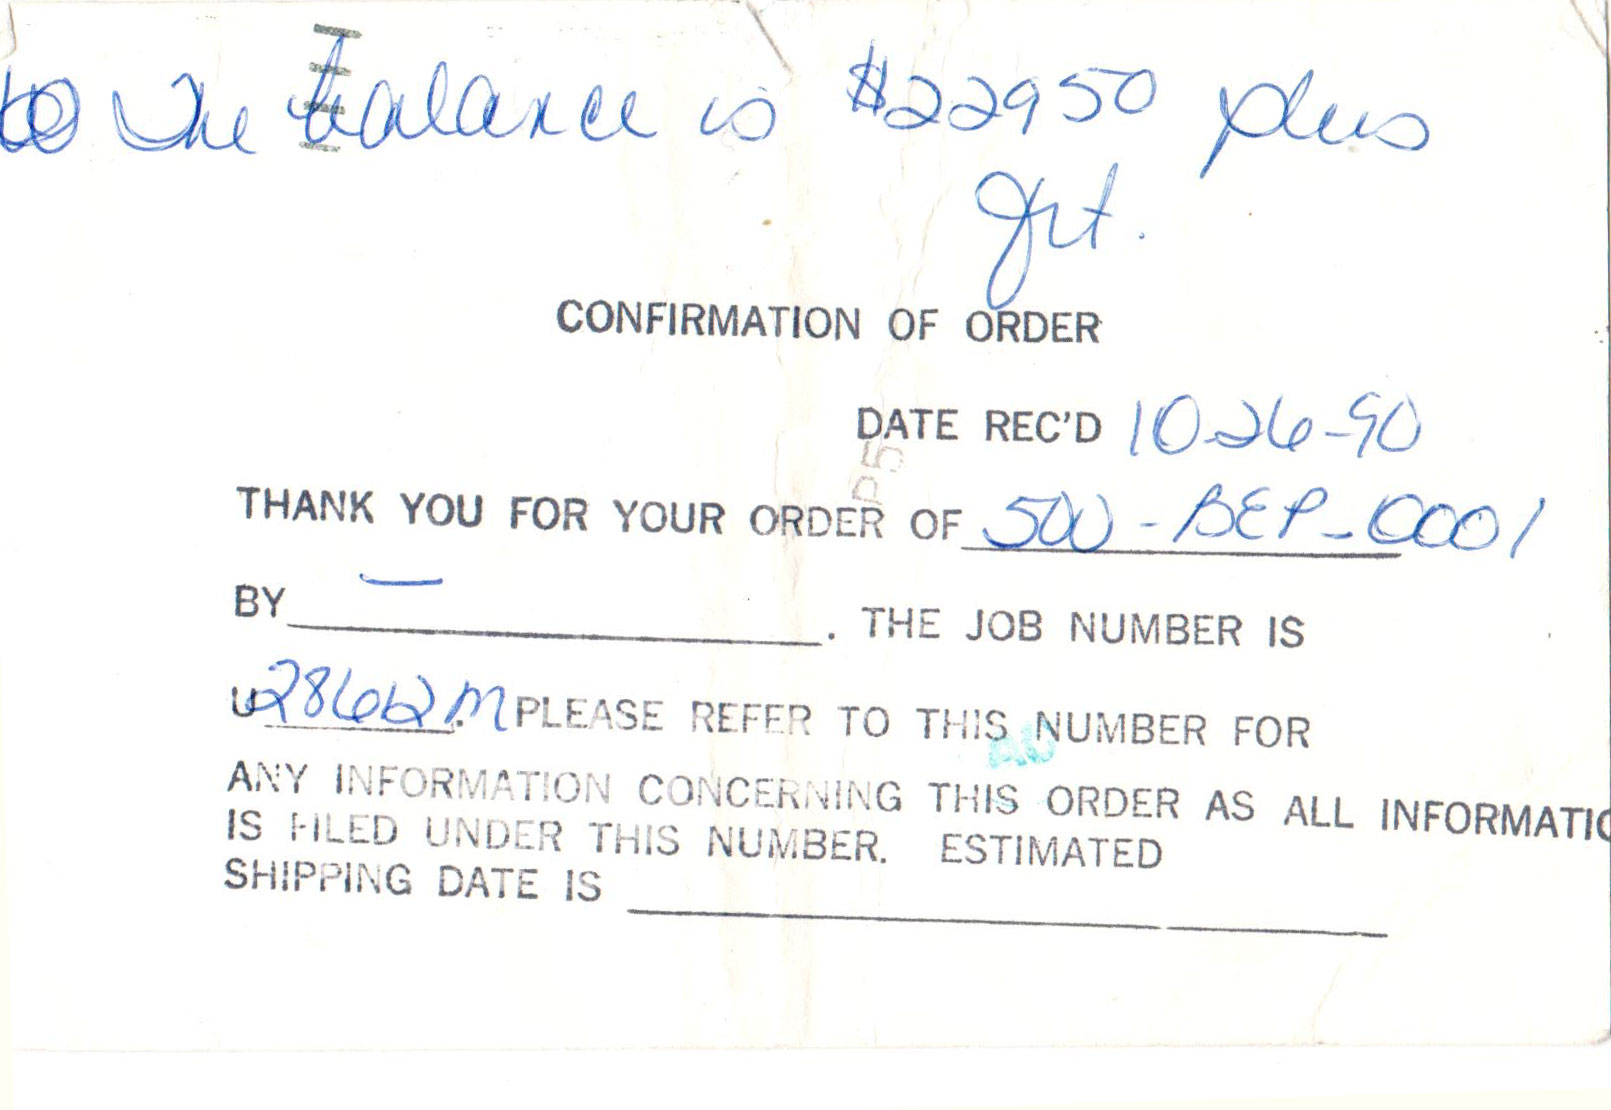 The balance is $22950 plus
frt.
CONFIRMATION OF ORDER
DATE REC'D 10-26-90
THANK YOU FOR YOUR ORDER OF 500-BEP-0001
BY — . THE JOB NUMBER IS
U28662M PLEASE REFER TO THIS NUMBER FOR
ANY INFORMATION CONCERNING THIS ORDER AS ALL INFORMATIO
IS FILED UNDER THIS NUMBER. ESTIMATED
SHIPPING DATE IS